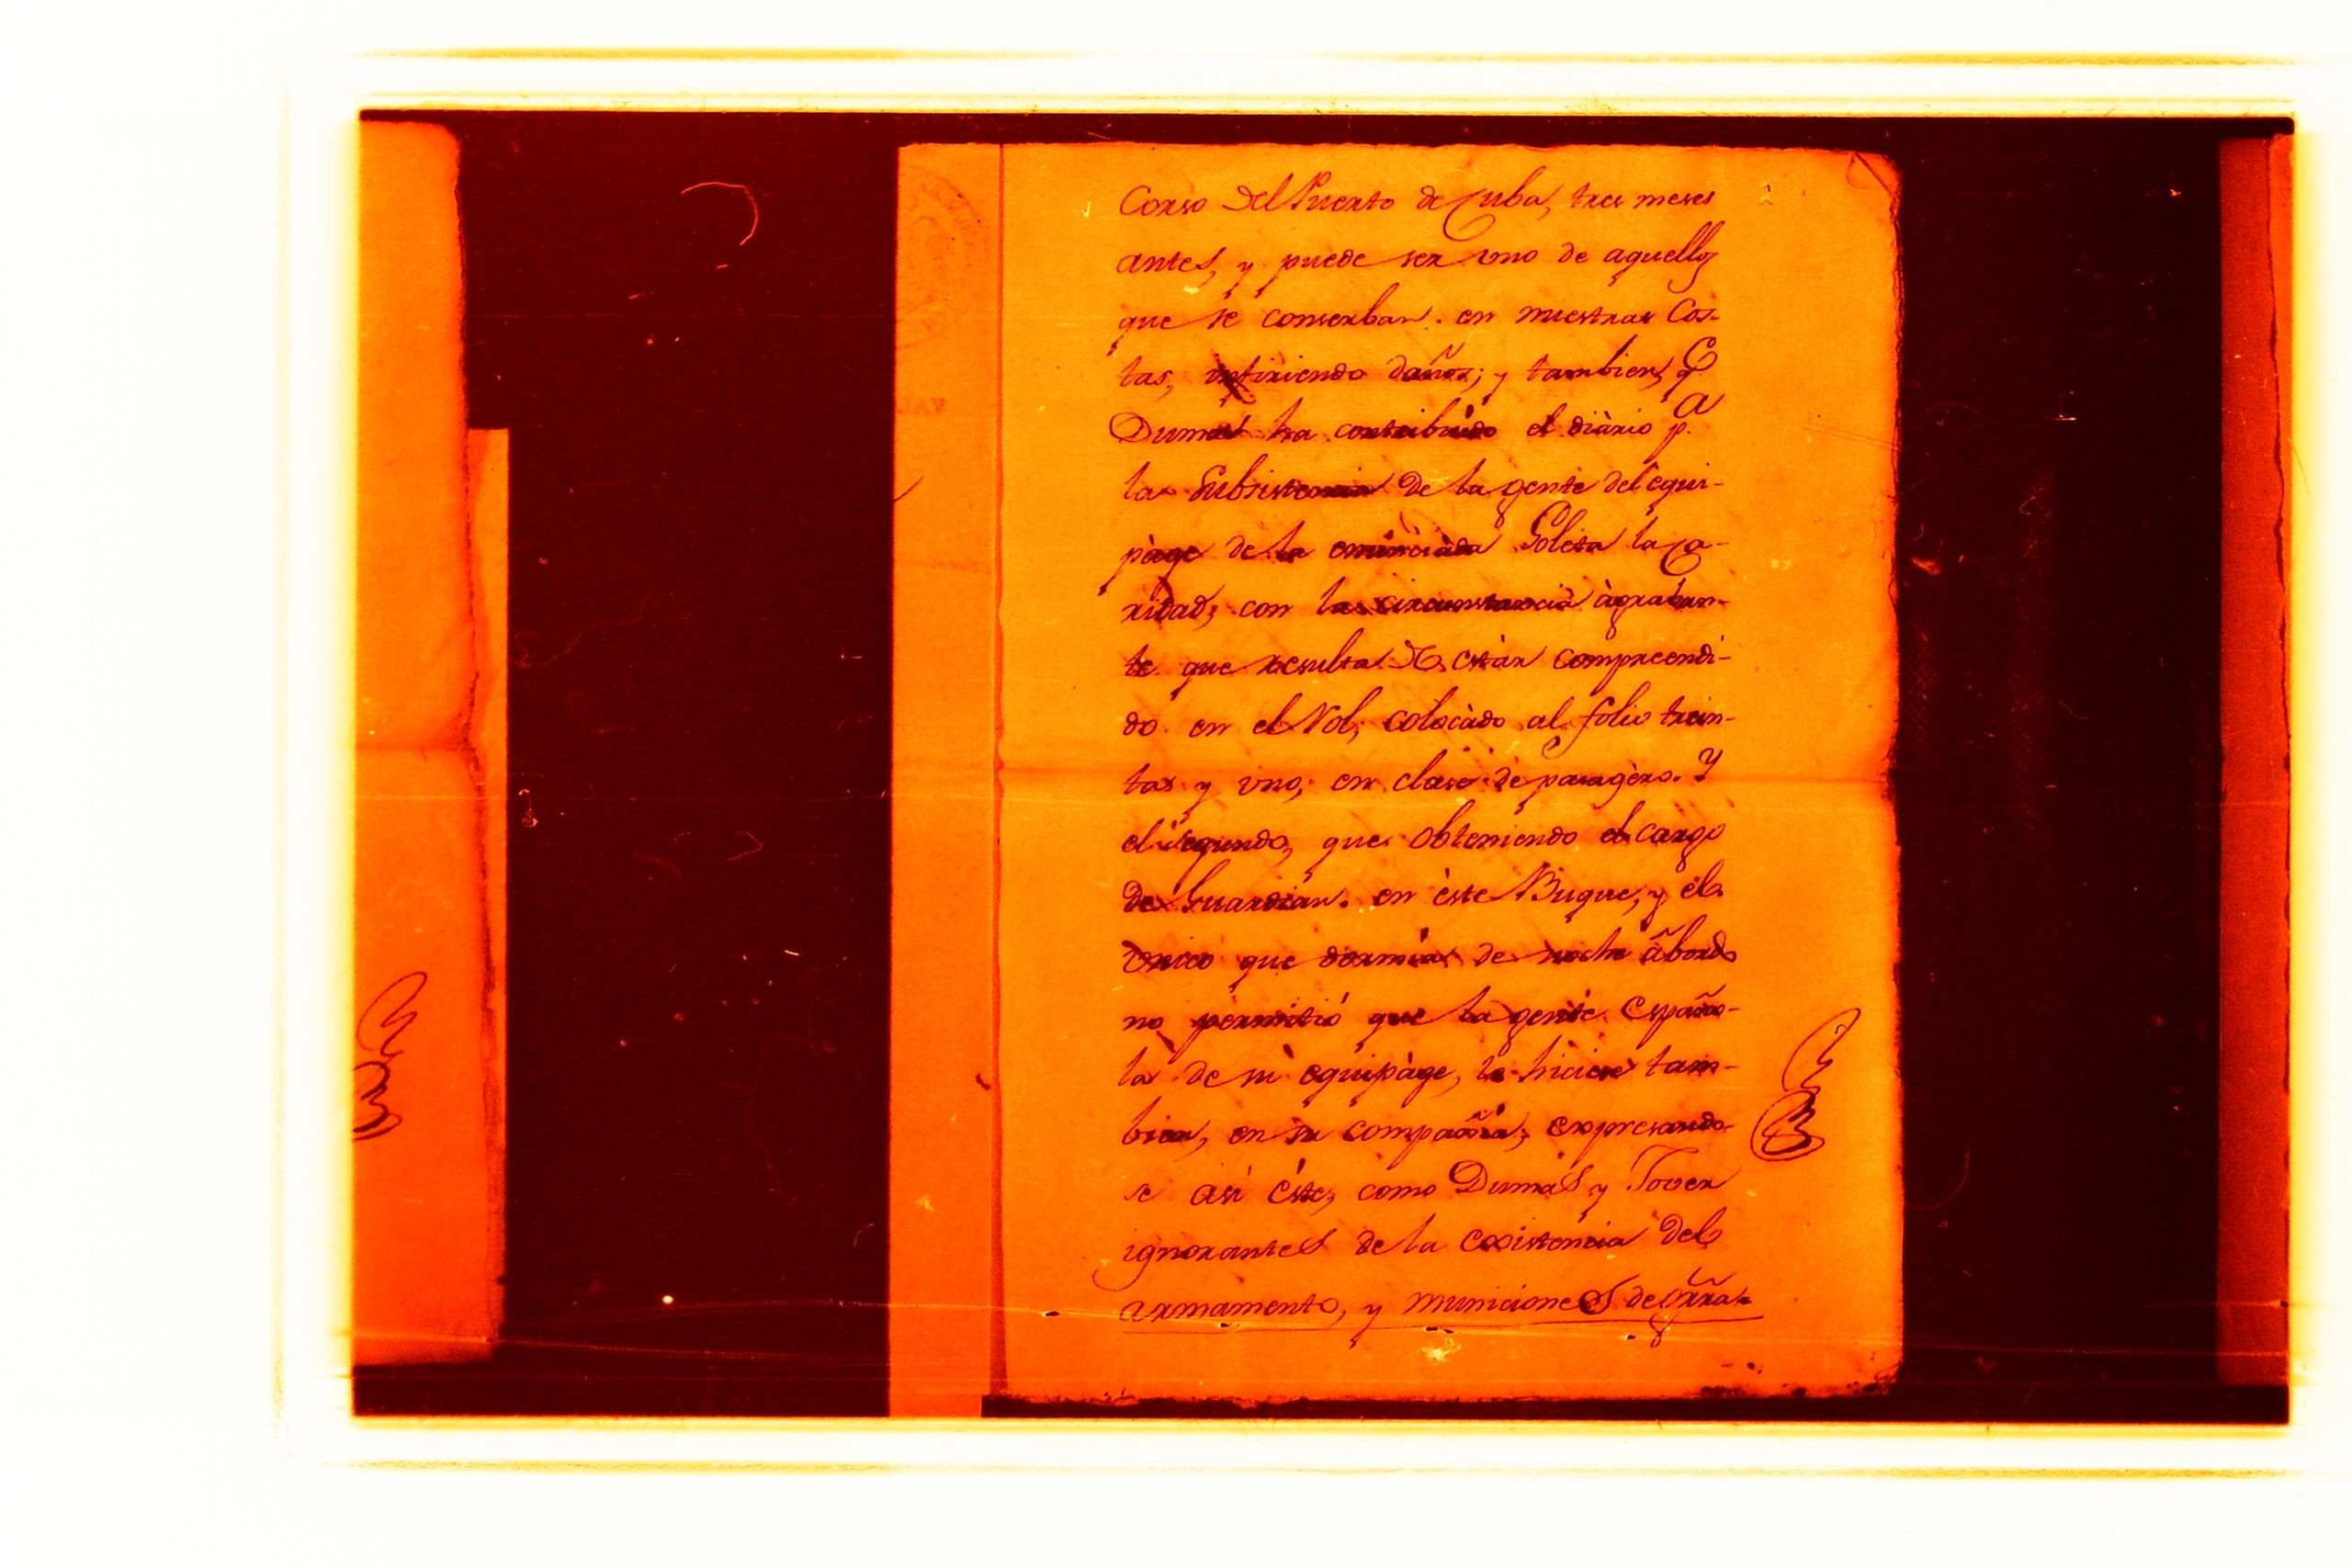 Corso del Puerto de Cuba, tres meses
antes, y puede ser uno de aquellos
que se conserban en nuestras Cos-
tas, infiriendo daños; y tambien q.e
Dumas ha contribuido el diàrio p.a
la Subsistencia de la gente del equi-
pàge de la enunciàda Goleta la Ca-
ridad, con la circunstancia àgraban-
te que resulta de estàr compreendi-
do en el Rol, colocàdo al folio trein-
ta y uno, en clase de pasagèro. Y
el segundo, que obteniendo el cargo
de Guardian en èste Buque, y el
unico que dormia de noche àbordo
no permitió que la gente Españo-
la de su equipàge, lo hiciese tam-
bien, en su compañia, expresando-
se asi éste, como Dumas y Tover
ignorantes de la existencia del
armamento, y municiones de grra